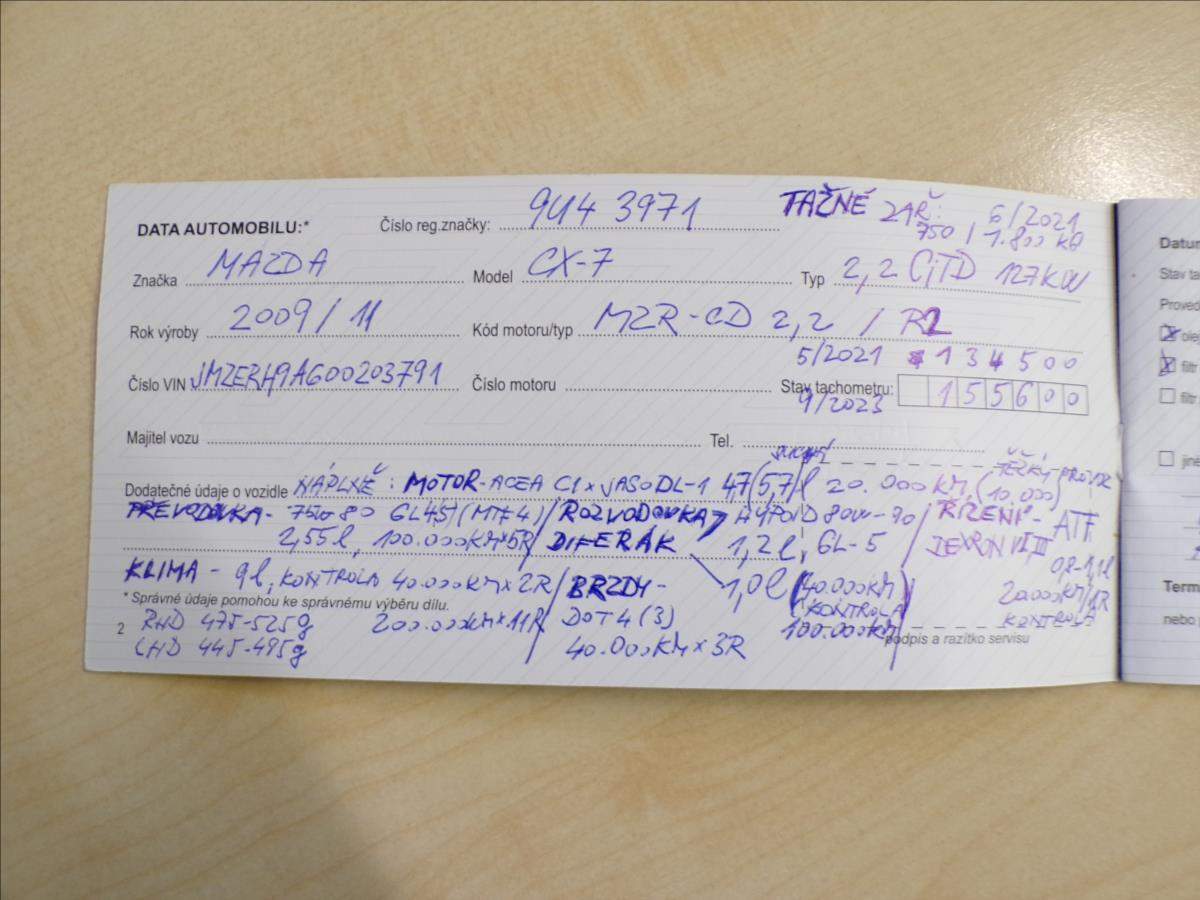 DATA AUTOMOBILU:* Číslo reg.značky: 9U4 3971 TAŽNÉ ZAŘ: 6/2021
750 / 1.800 kg
Značka MAZDA Model CX-7 Typ 2,2 CiTD 127KW
Rok výroby 2009/11 Kód motoru/typ MZR-CD 2,2 / R2
5/2021 134500
Číslo VIN JMZERH9A600203791 Číslo motoru Stav tachometru: 155600
9/2023
Majitel vozu Tel.
SUCHÝ TĚŽKÝ PROVOZ
Dodatečné údaje o vozidle NÁPLNĚ: MOTOR-ACEA C1 x JASO DL-1 4,7 (5,7) l 20.000 KM (10.000)
PŘEVODOVKA- 75W80 GL4 (MT4) / ROZVODOVKA HYPOID 80W-90 / ŘÍZENÍ- ATF
2,55l, 100.000KM×5R DIFERÁK 1,2l, GL-5 DEXRON III
0,8-1,1l
KLIMA - 9l, KONTROLA 40.000KM×2R / BRZDY- 1,0l (40.000KM 20.000KM/1R
* Správné údaje pomohou ke správnému výběru dílu. KONTROLA KONTROLA
2 RHD 475-525g 200.000KM×11R DOT4 (3) 100.000KM
podpis a razítko servisu
LHD 445-495g 40.000KM×3R
Datum
Stav ta
Proved
olej
filtr
filtr
jiné
Term
nebo